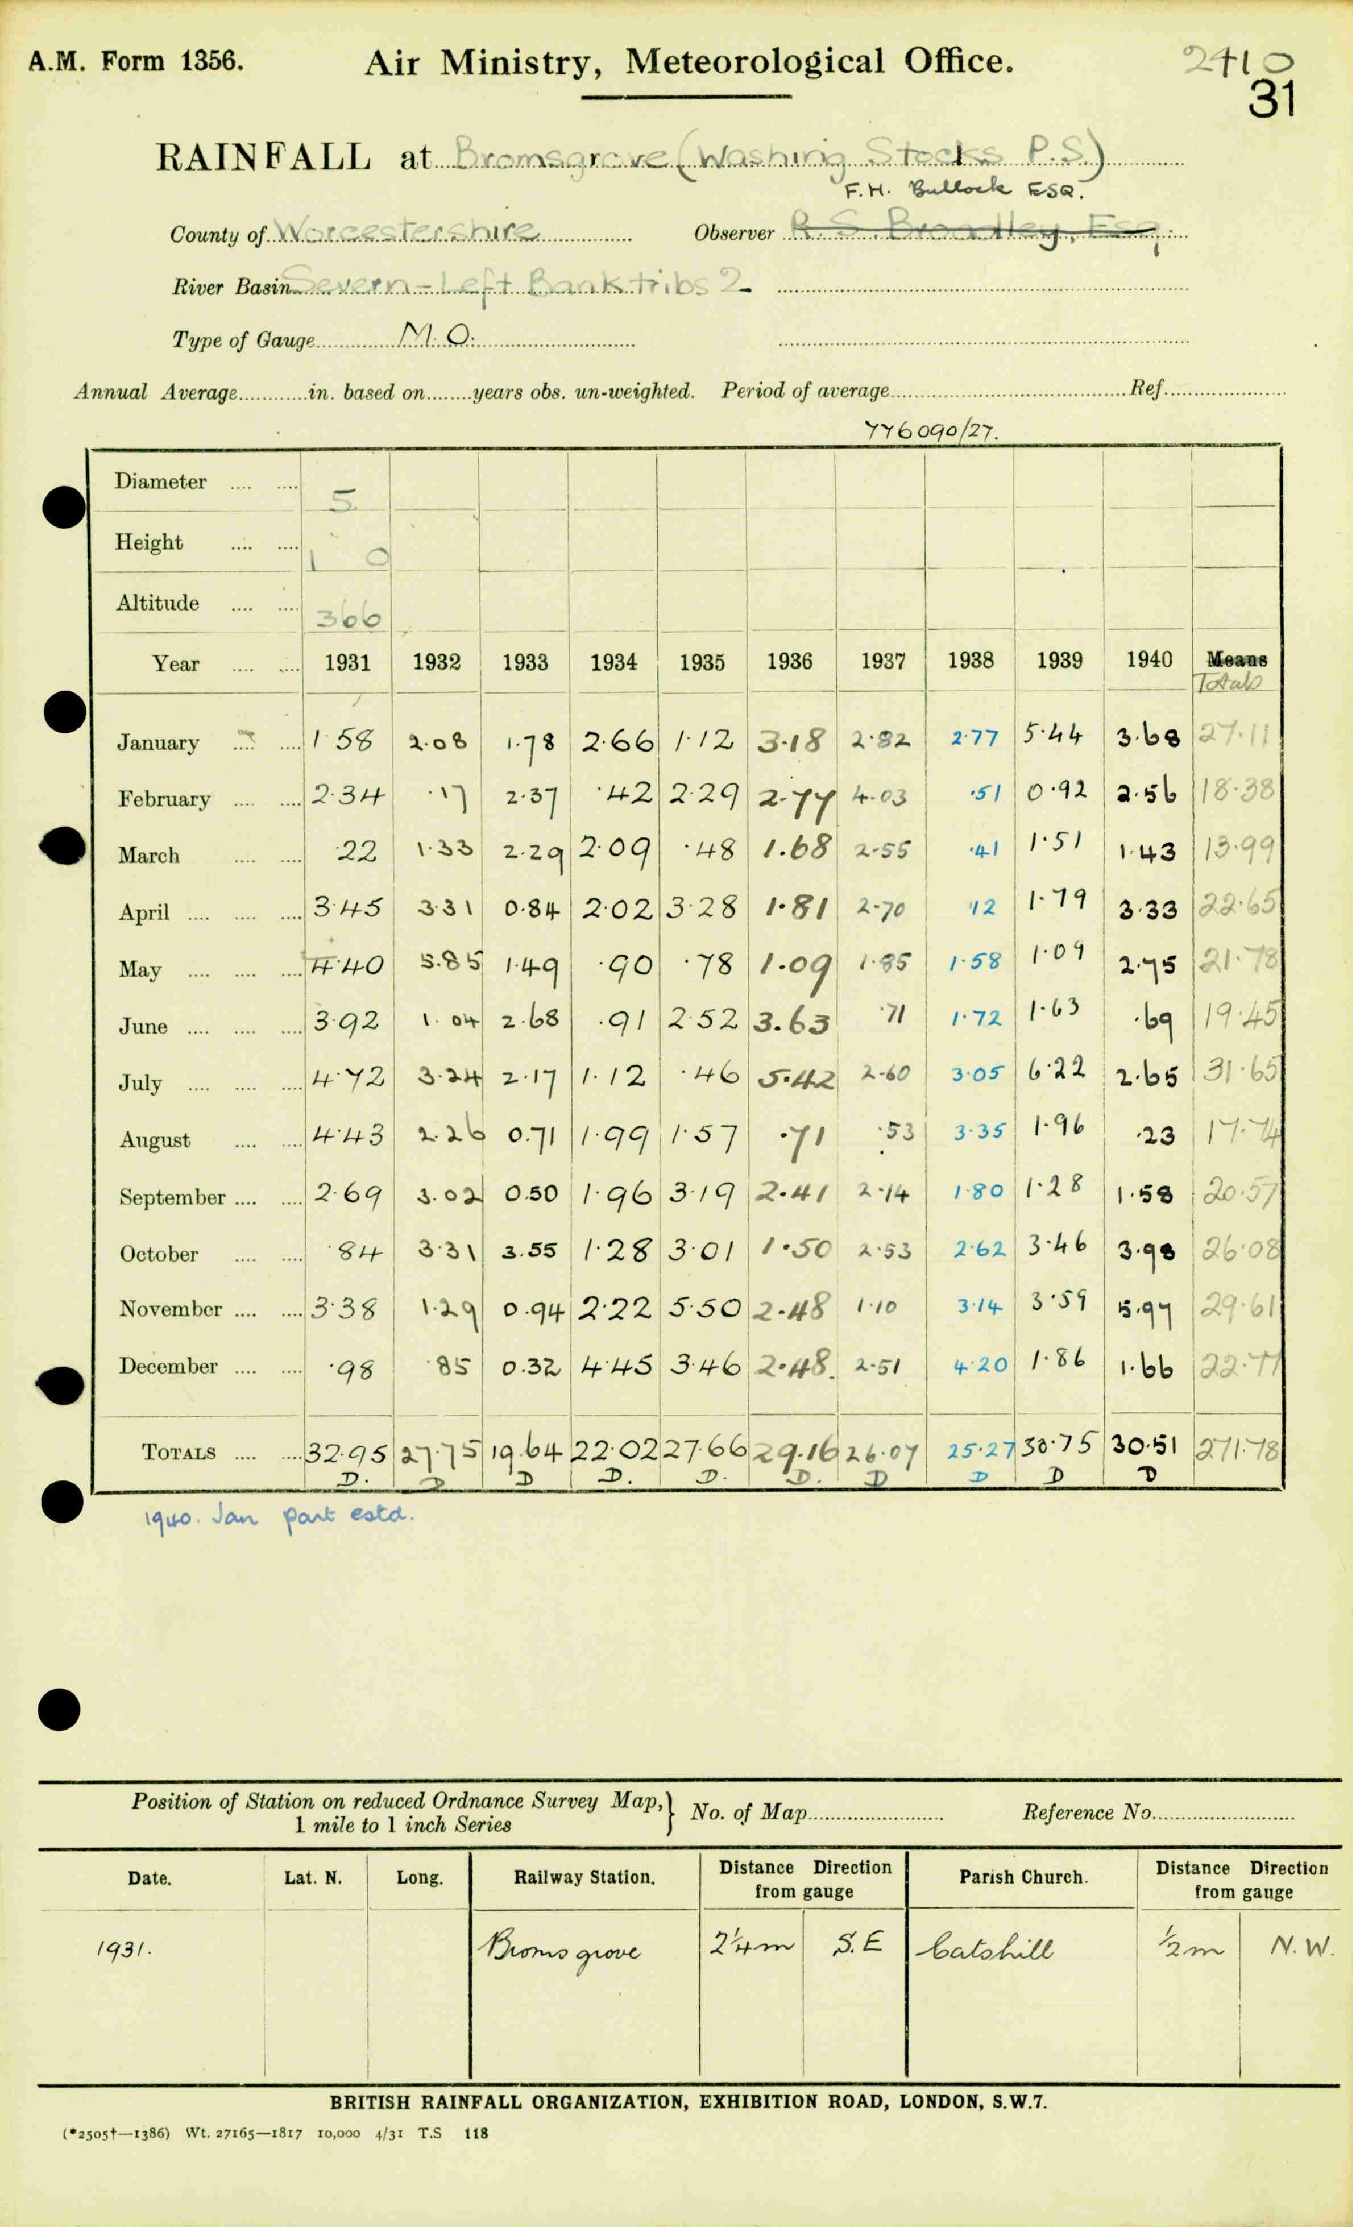 A.M. Form 1356. Air Ministry, Meteorological Office. 2410
31
RAINFALL at Bromsgrove (Washing Stocks P.S.)
F.H. Bullock ESQ.
County of Worcestershire Observer R. S. Broadley, Esq.
River Basin Severn - Left Bank tribs 2
Type of Gauge M.O.
Annual Average............in. based on........years obs. un-weighted. Period of average........ Ref........
776090/27.
Diameter 5
Height 1 0
Altitude 366
Year 1931 1932 1933 1934 1935 1936 1937 1938 1939 1940 Means
Totals
January 1.58 2.08 1.78 2.66 1.12 3.18 2.82 2.77 5.44 3.68 27.11
February 2.34 .17 2.37 .42 2.29 2.77 4.03 .51 0.92 2.56 18.38
March .22 1.33 2.29 2.09 .48 1.68 2.55 .41 1.51 1.43 13.99
April 3.45 3.31 0.84 2.02 3.28 1.81 2.70 .12 1.79 3.33 22.65
May 4.40 5.85 1.49 .90 .78 1.09 1.85 1.58 1.09 2.75 21.78
June 3.92 1.04 2.68 .91 2.52 3.63 .71 1.72 1.63 .69 19.45
July 4.72 3.24 2.17 1.12 .46 5.42 2.60 3.05 6.22 2.65 31.65
August 4.43 2.26 0.71 1.99 1.57 .71 .53 3.35 1.96 .23 17.74
September 2.69 3.02 0.50 1.96 3.19 2.41 2.14 1.80 1.28 1.58 20.57
October .84 3.31 3.55 1.28 3.01 1.50 2.53 2.62 3.46 3.98 26.08
November 3.38 1.29 0.94 2.22 5.50 2.48 1.10 3.14 3.59 5.97 29.61
December .98 .85 0.32 4.45 3.46 2.48 2.51 4.20 1.86 1.66 22.77
TOTALS 32.95 27.75 19.64 22.02 27.66 29.16 26.07 25.27 30.75 30.51 271.78
D. D D D. D. D. D D D D
1940. Jan part estd.
Position of Station on reduced Ordnance Survey Map, } No. of Map........ Reference No........
1 mile to 1 inch Series
Date. Lat. N. Long. Railway Station. Distance Direction from gauge Parish Church. Distance Direction from gauge
1931. Bromsgrove 2¼m S.E Catshill ½m N.W.
BRITISH RAINFALL ORGANIZATION, EXHIBITION ROAD, LONDON, S.W.7.
(*2505†—1386) Wt. 27165—1817 10,000 4/31 T.S 118